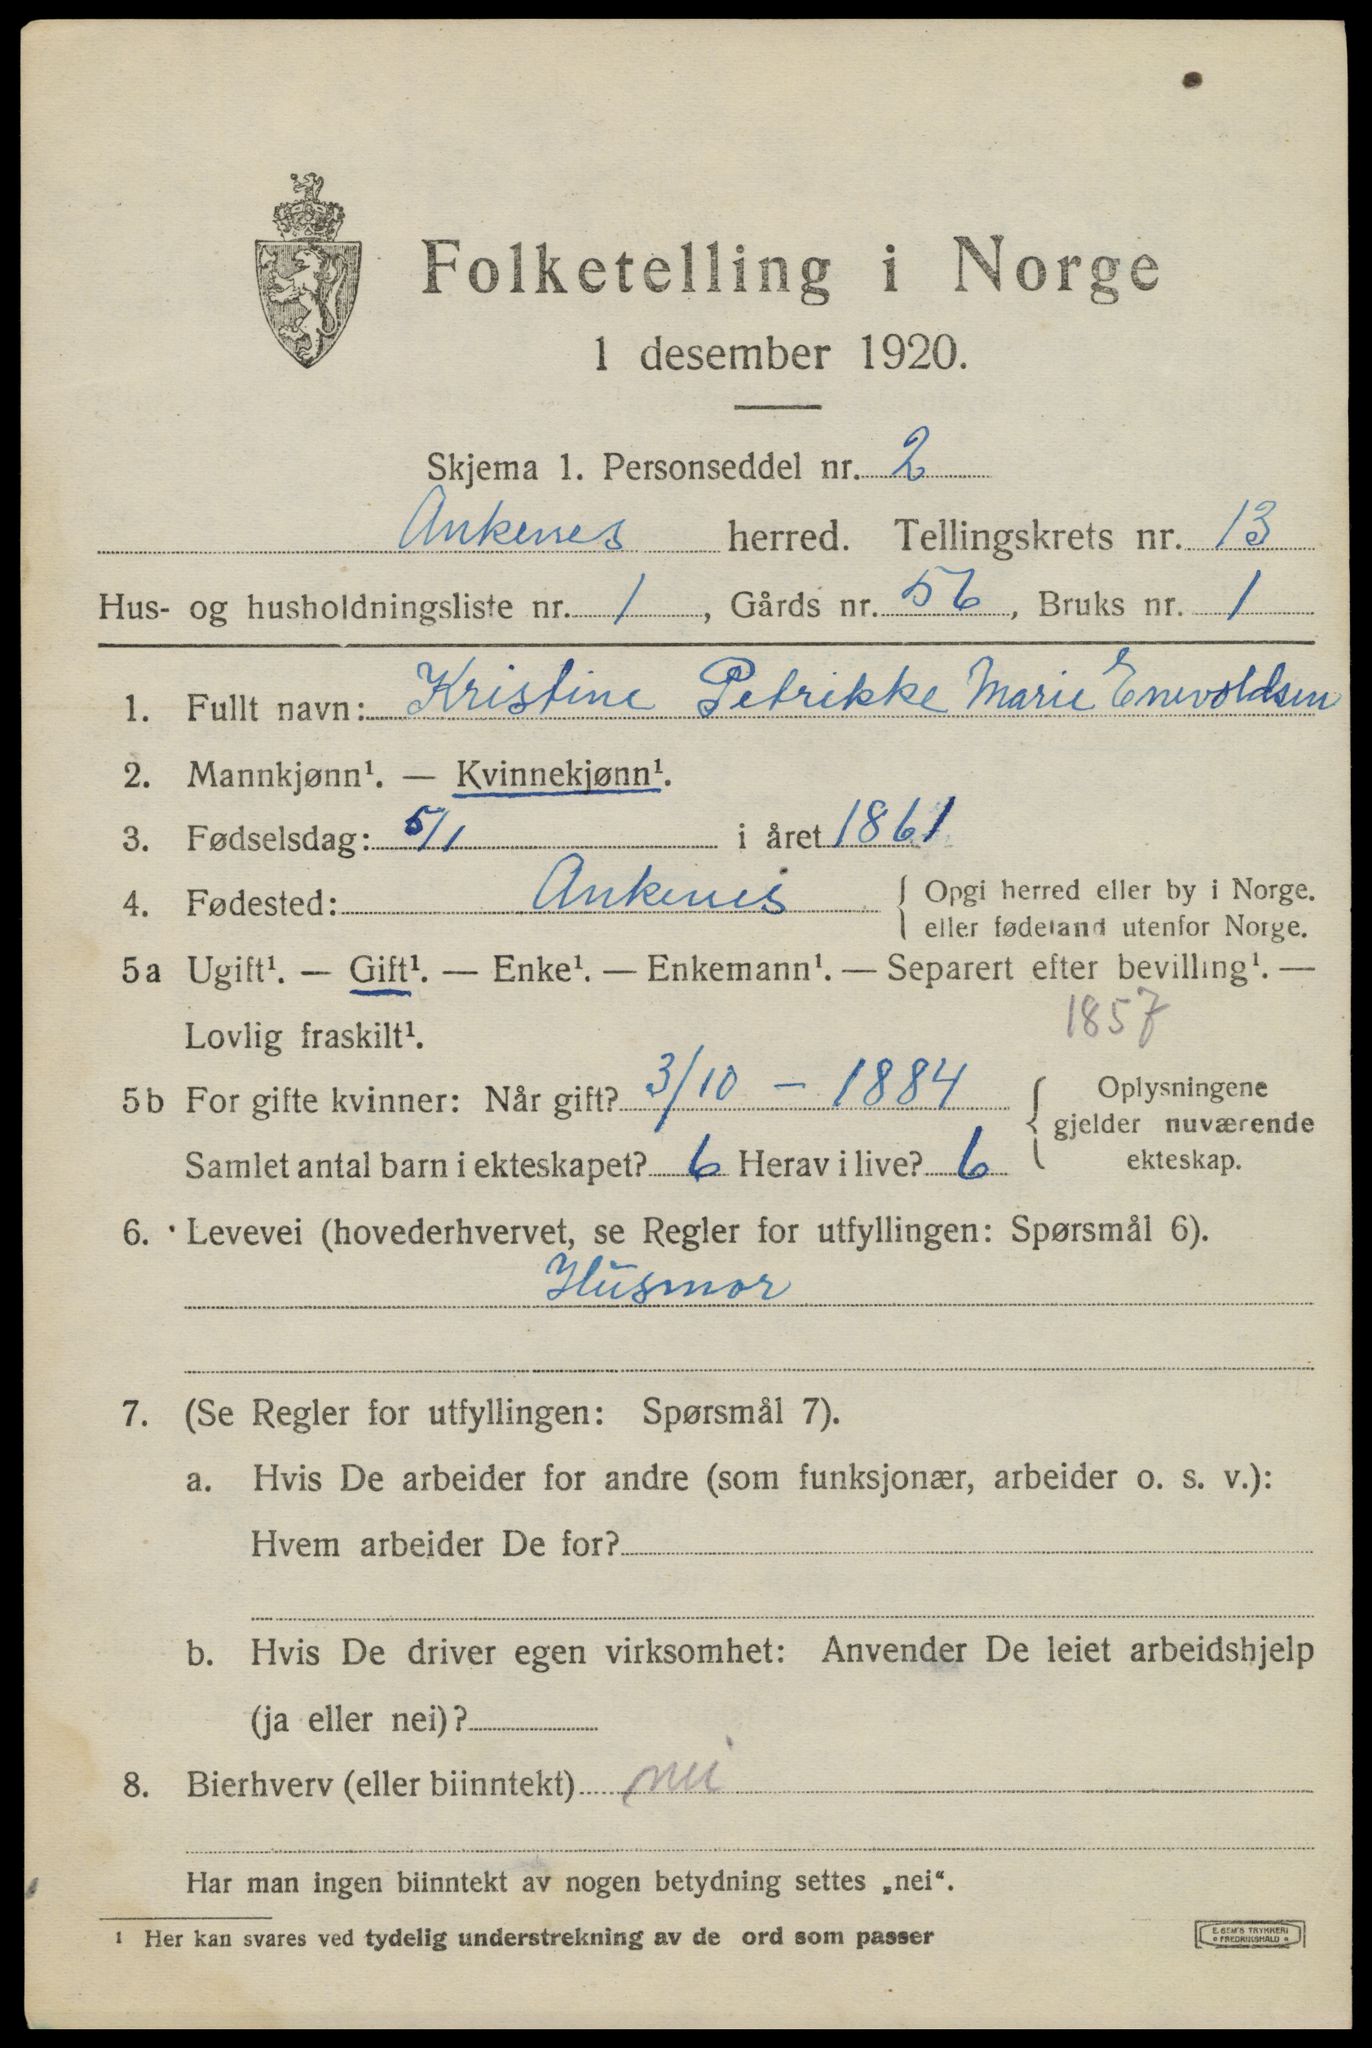 Folketelling i Norge
1 desember 1920.
Skjema 1. Personseddel nr. 2
Ankenes herred. Tellingskrets nr. 13
Hus- og husholdningsliste nr. 1, Gårds nr. 56, Bruks nr. 1
1. Fullt navn: Kristine Petrikke Marie Enevoldsen
2. Mannkjønn¹. — Kvinnekjønn¹.
3. Fødselsdag: 5/1 i året 1861
4. Fødested: Ankenes { Opgi herred eller by i Norge.
eller fødeland utenfor Norge.
5a Ugift¹. — Gift¹. — Enke¹. — Enkemann¹. — Separert efter bevilling¹. —
Lovlig fraskilt¹. 1857
5b For gifte kvinner: Når gift? 3/10 - 1884 { Oplysningene
gjelder nuværende
Samlet antal barn i ekteskapet? 6 Herav i live? 6 ekteskap.
6. Levevei (hovederhvervet, se Regler for utfyllingen: Spørsmål 6).
Husmor
7. (Se Regler for utfyllingen: Spørsmål 7).
a. Hvis De arbeider for andre (som funksjonær, arbeider o. s. v.):
Hvem arbeider De for?
b. Hvis De driver egen virksomhet: Anvender De leiet arbeidshjelp
(ja eller nei)?
8. Bierhverv (eller biinntekt) nei
Har man ingen biinntekt av nogen betydning settes „nei“.
¹ Her kan svares ved tydelig understrekning av de ord som passer
E. SEM'S TRYKKERI
FREDRIKSHALD